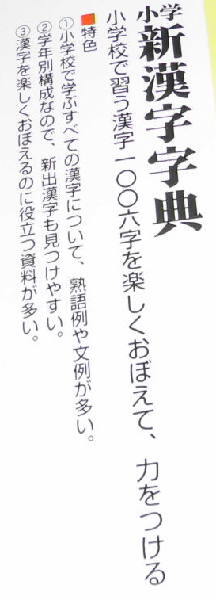 小学
新漢字字典
小学校で習う漢字一〇〇六字を楽しくおぼえて、力をつける
■特色
①小学校で学ぶすべての漢字について、熟語例や文例が多い。
②学年別構成なので、新出漢字も見つけやすい。
③漢字を楽しくおぼえるのに役立つ資料が多い。